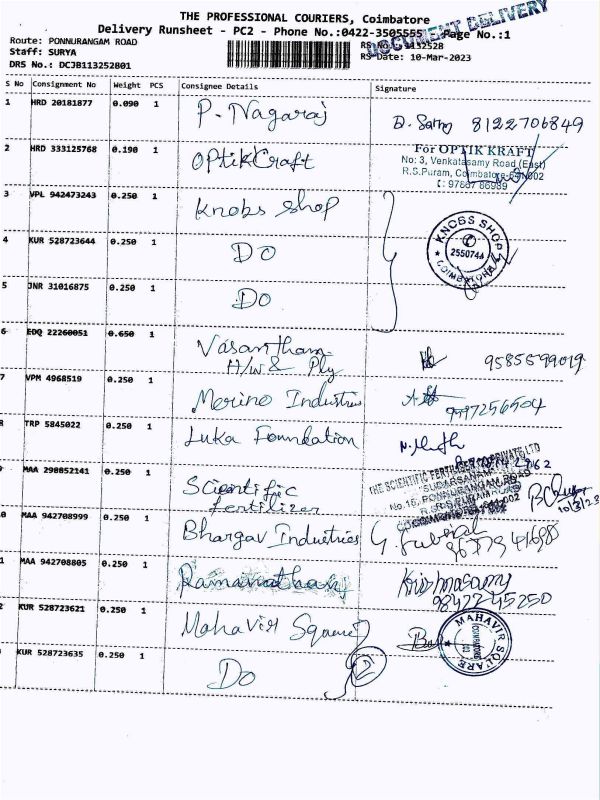 THE PROFESSIONAL COURIERS, Coimbatore
DOCUMENT DELIVERY
Delivery Runsheet - PC2 - Phone No.:0422-3505555 Page No.:1
Route: PONNURANGAM ROAD
Staff: SURYA
DRS No.: DCJB113252801
RS-Date: 10-Mar-2023
S No Consignment No Weight PCS Consignee Details Signature
1 HRD 20181877 0.090 1 P. Nagaraj 8122706849
2 HRD 333125768 0.190 1 OPtikCraft
For OPTIK KRAFT
No: 3, Venkatasamy Road (East)
R.S.Puram, Coimbatore
3 VPL 942473243 0.250 1 Knobs shop
KNOBS SHOP
COIMBATORE
4 KUR 528723644 0.250 1 DO
5 JNR 31016875 0.250 1 DO
6 EDQ 22260051 0.650 1 Vasantham
H/W & Ply
7 VPM 4968519 0.250 1 Merino Industries
8 TRP 5845022 0.250 1 Luka Foundation
MAA 298852141 0.250 1 Scientific
fertilizer
THE SCIENTIFIC FERTILISER PRIVATE LTD
"SUDARSANAM"
No.16, PONNURANGAM ROAD
10/3/23
0 MAA 942708999 0.250 1 Bhargav Industries
1 MAA 942708805 0.250 1 Ramanathan Krishnasamy
9842245250
2 KUR 528723621 0.250 1 Mahavir Square
MAHAVIR SQUARE
KUR 528723635 0.250 1 DO